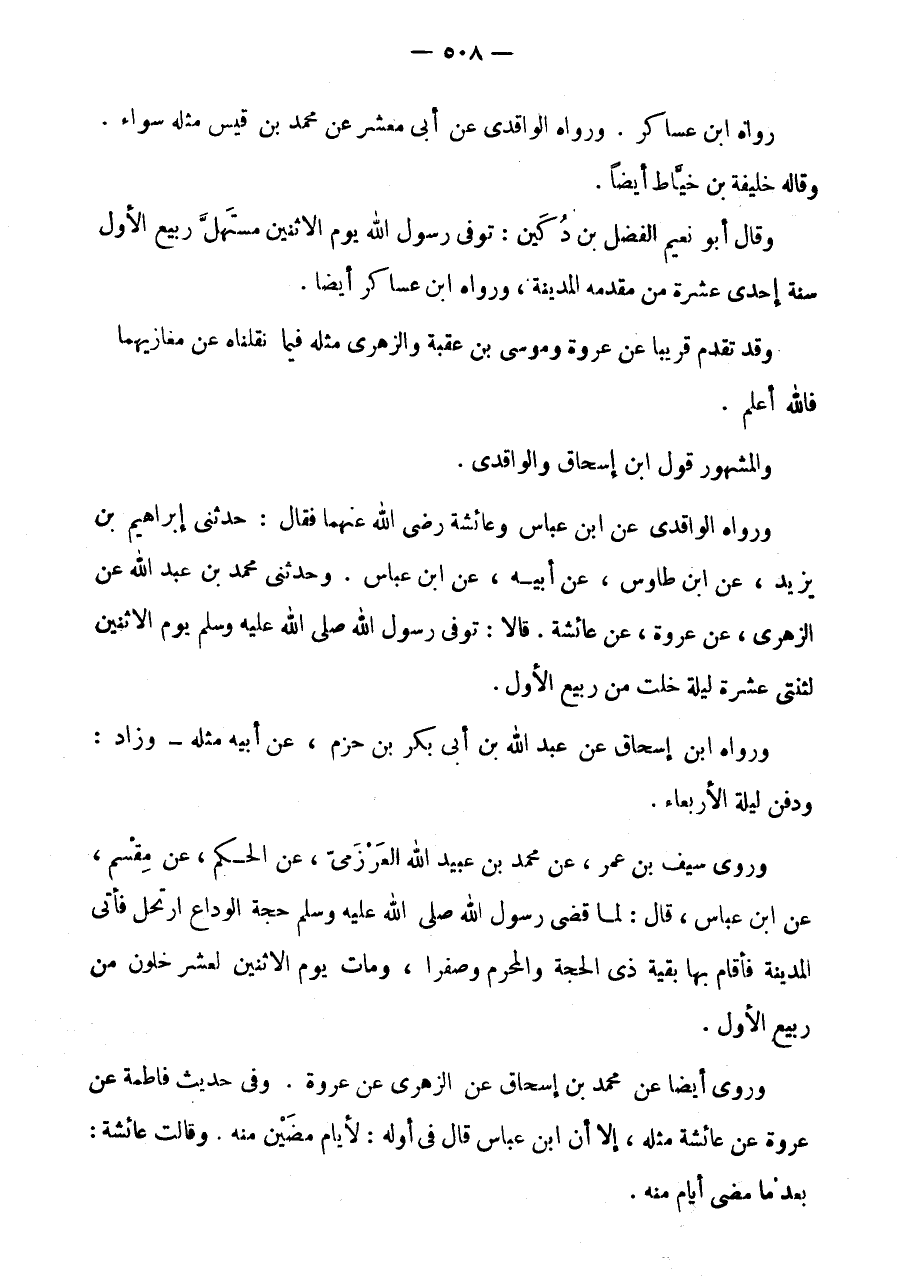 — ٥٠٨ —
رواه ابن عساكر . ورواه الواقدى عن أبى معشر عن محمد بن قيس مثله سواء .
وقاله خليفة بن خيَّاط أيضاً .
وقال أبو نعيم الفضل بن دُكَين : توفى رسول الله يوم الاثنين مستَهلَّ ربيع الأول
سنة إحدى عشرة من مقدمه المدينة ، ورواه ابن عساكر أيضا .
وقد تقدم قريبا عن عروة وموسى بن عقبة والزهرى مثله فيما نقلناه عن مغازيهما
فالله أعلم .
والمشهور قول ابن إسحاق والواقدى .
ورواه الواقدى عن ابن عباس وعائشة رضى الله عنهما فقال : حدثنى إبراهيم بن
يزيد ، عن ابن طاوس ، عن أبيـه ، عن ابن عباس . وحدثنى محمد بن عبد الله عن
الزهرى ، عن عروة ، عن عائشة . قالا : توفى رسول الله صلى الله عليه وسلم يوم الاثنين
لثنتى عشرة ليلة خلت من ربيع الأول .
ورواه ابن إسحاق عن عبد الله بن أبى بكر بن حزم ، عن أبيه مثله – وزاد :
ودفن ليلة الأربعاء .
وروى سيف بن عمر ، عن محمد بن عبيد الله العَرْزَمىّ ، عن الحـكم ، عن مِقْسم ،
عن ابن عباس ، قال : لمـا قضى رسول الله صلى الله عليه وسلم حجة الوداع ارتحل فأتى
المدينة فأقام بها بقية ذى الحجة والمحرم وصفرا ، ومات يوم الاثنين لعشر خلون من
ربيع الأول .
وروى أيضا عن محمد بن إسحاق عن الزهرى عن عروة . وفى حديث فاطمة عن
عروة عن عائشة مثله ، إلا أن ابن عباس قال فى أوله : لأيام مضَيْن منه . وقالت عائشة :
بعد ما مضى أيام منه .